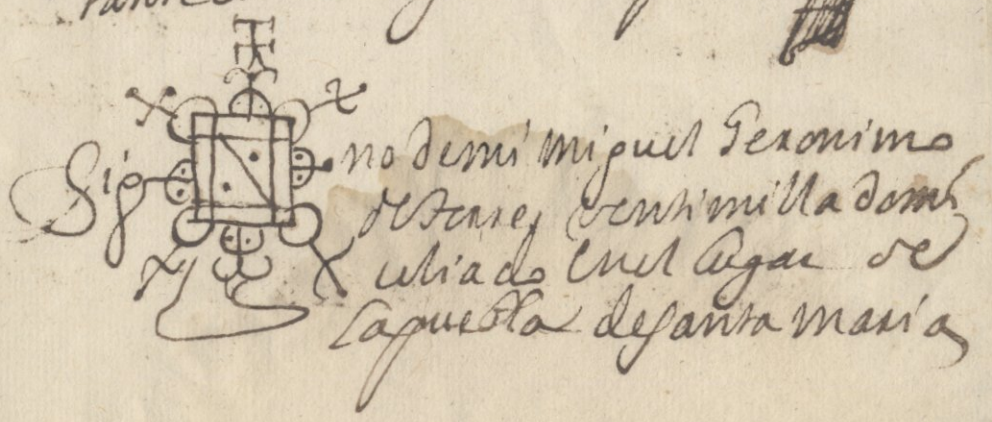 Sig no demi miguel Geronimo
de Torres ventimilla domi
ciliado Enel lugar de
la puebla de santa maria